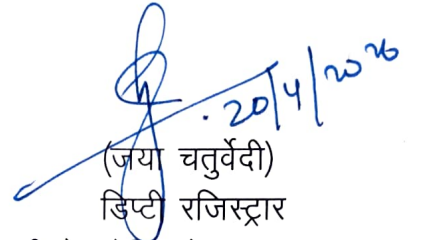 20/4/2026
(जया चतुर्वेदी)
डिप्टी रजिस्ट्रार